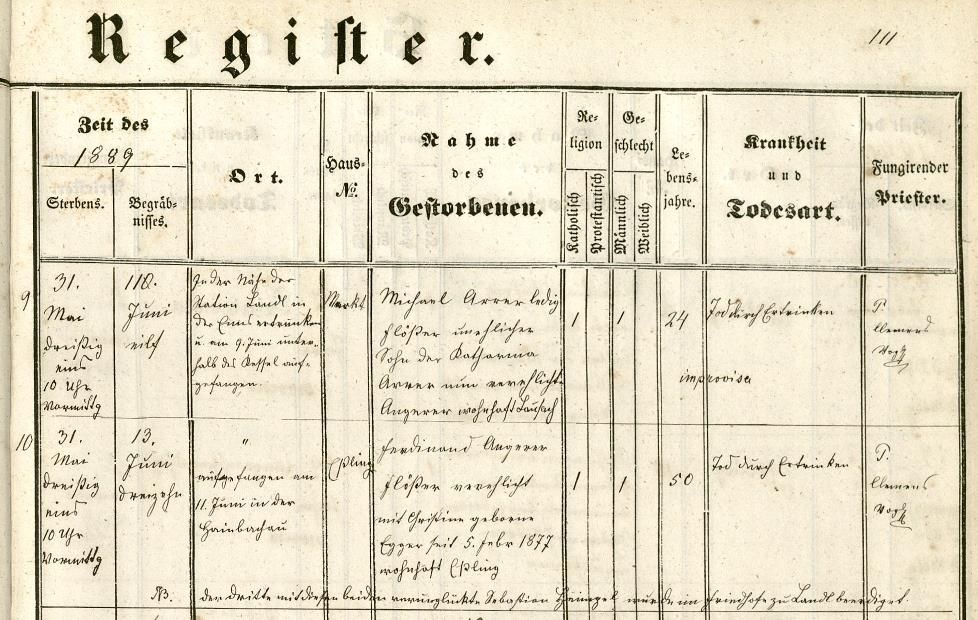 Register.
111
Zeit des
1889
Sterbens.
Begräb-
nisses.
Ort.
Haus-
No.
Nahme
des
Gestorbenen.
Re-
ligion
Katholisch
Protestantisch
Ge-
schlecht
Männlich
Weiblich
Le-
bens-
jahre.
Krankheit
und
Todesart.
Fungirender
Priester.
9
31.
Mai
dreißig
eins
10 Uhr
Vormittg
11.
Juni
eilf
In der Nähe der
Station Landl in
der Enns ertrunken
u. am 9. Juni unter-
halb des Kessel auf-
gefangen.
Markt
Michael Arrer ledig
Flößer unehlicher
Sohn der Katharina
Arrer nun verehlicht
Angerer wohnhaft
1
1
24
Tod durch Ertrinken
improvisa
P.
Clemens
10
31.
Mai
dreißig
eins
10 Uhr
Vormittg
13.
Juni
dreizehn
"
aufgefangen am
11. Juni in der
Hainbachau
Eßling
Ferdinand Angerer
Flößer verehlicht
mit Christine geborne
Egger seit 5. Febr 1877
wohnhaft Eßling
1
1
50
Tod durch Ertrinken
P.
Clemens
NB. der dritte mit diesen beiden verunglückte Sebastian wurde im Friedhofe zu Landl beerdiget.